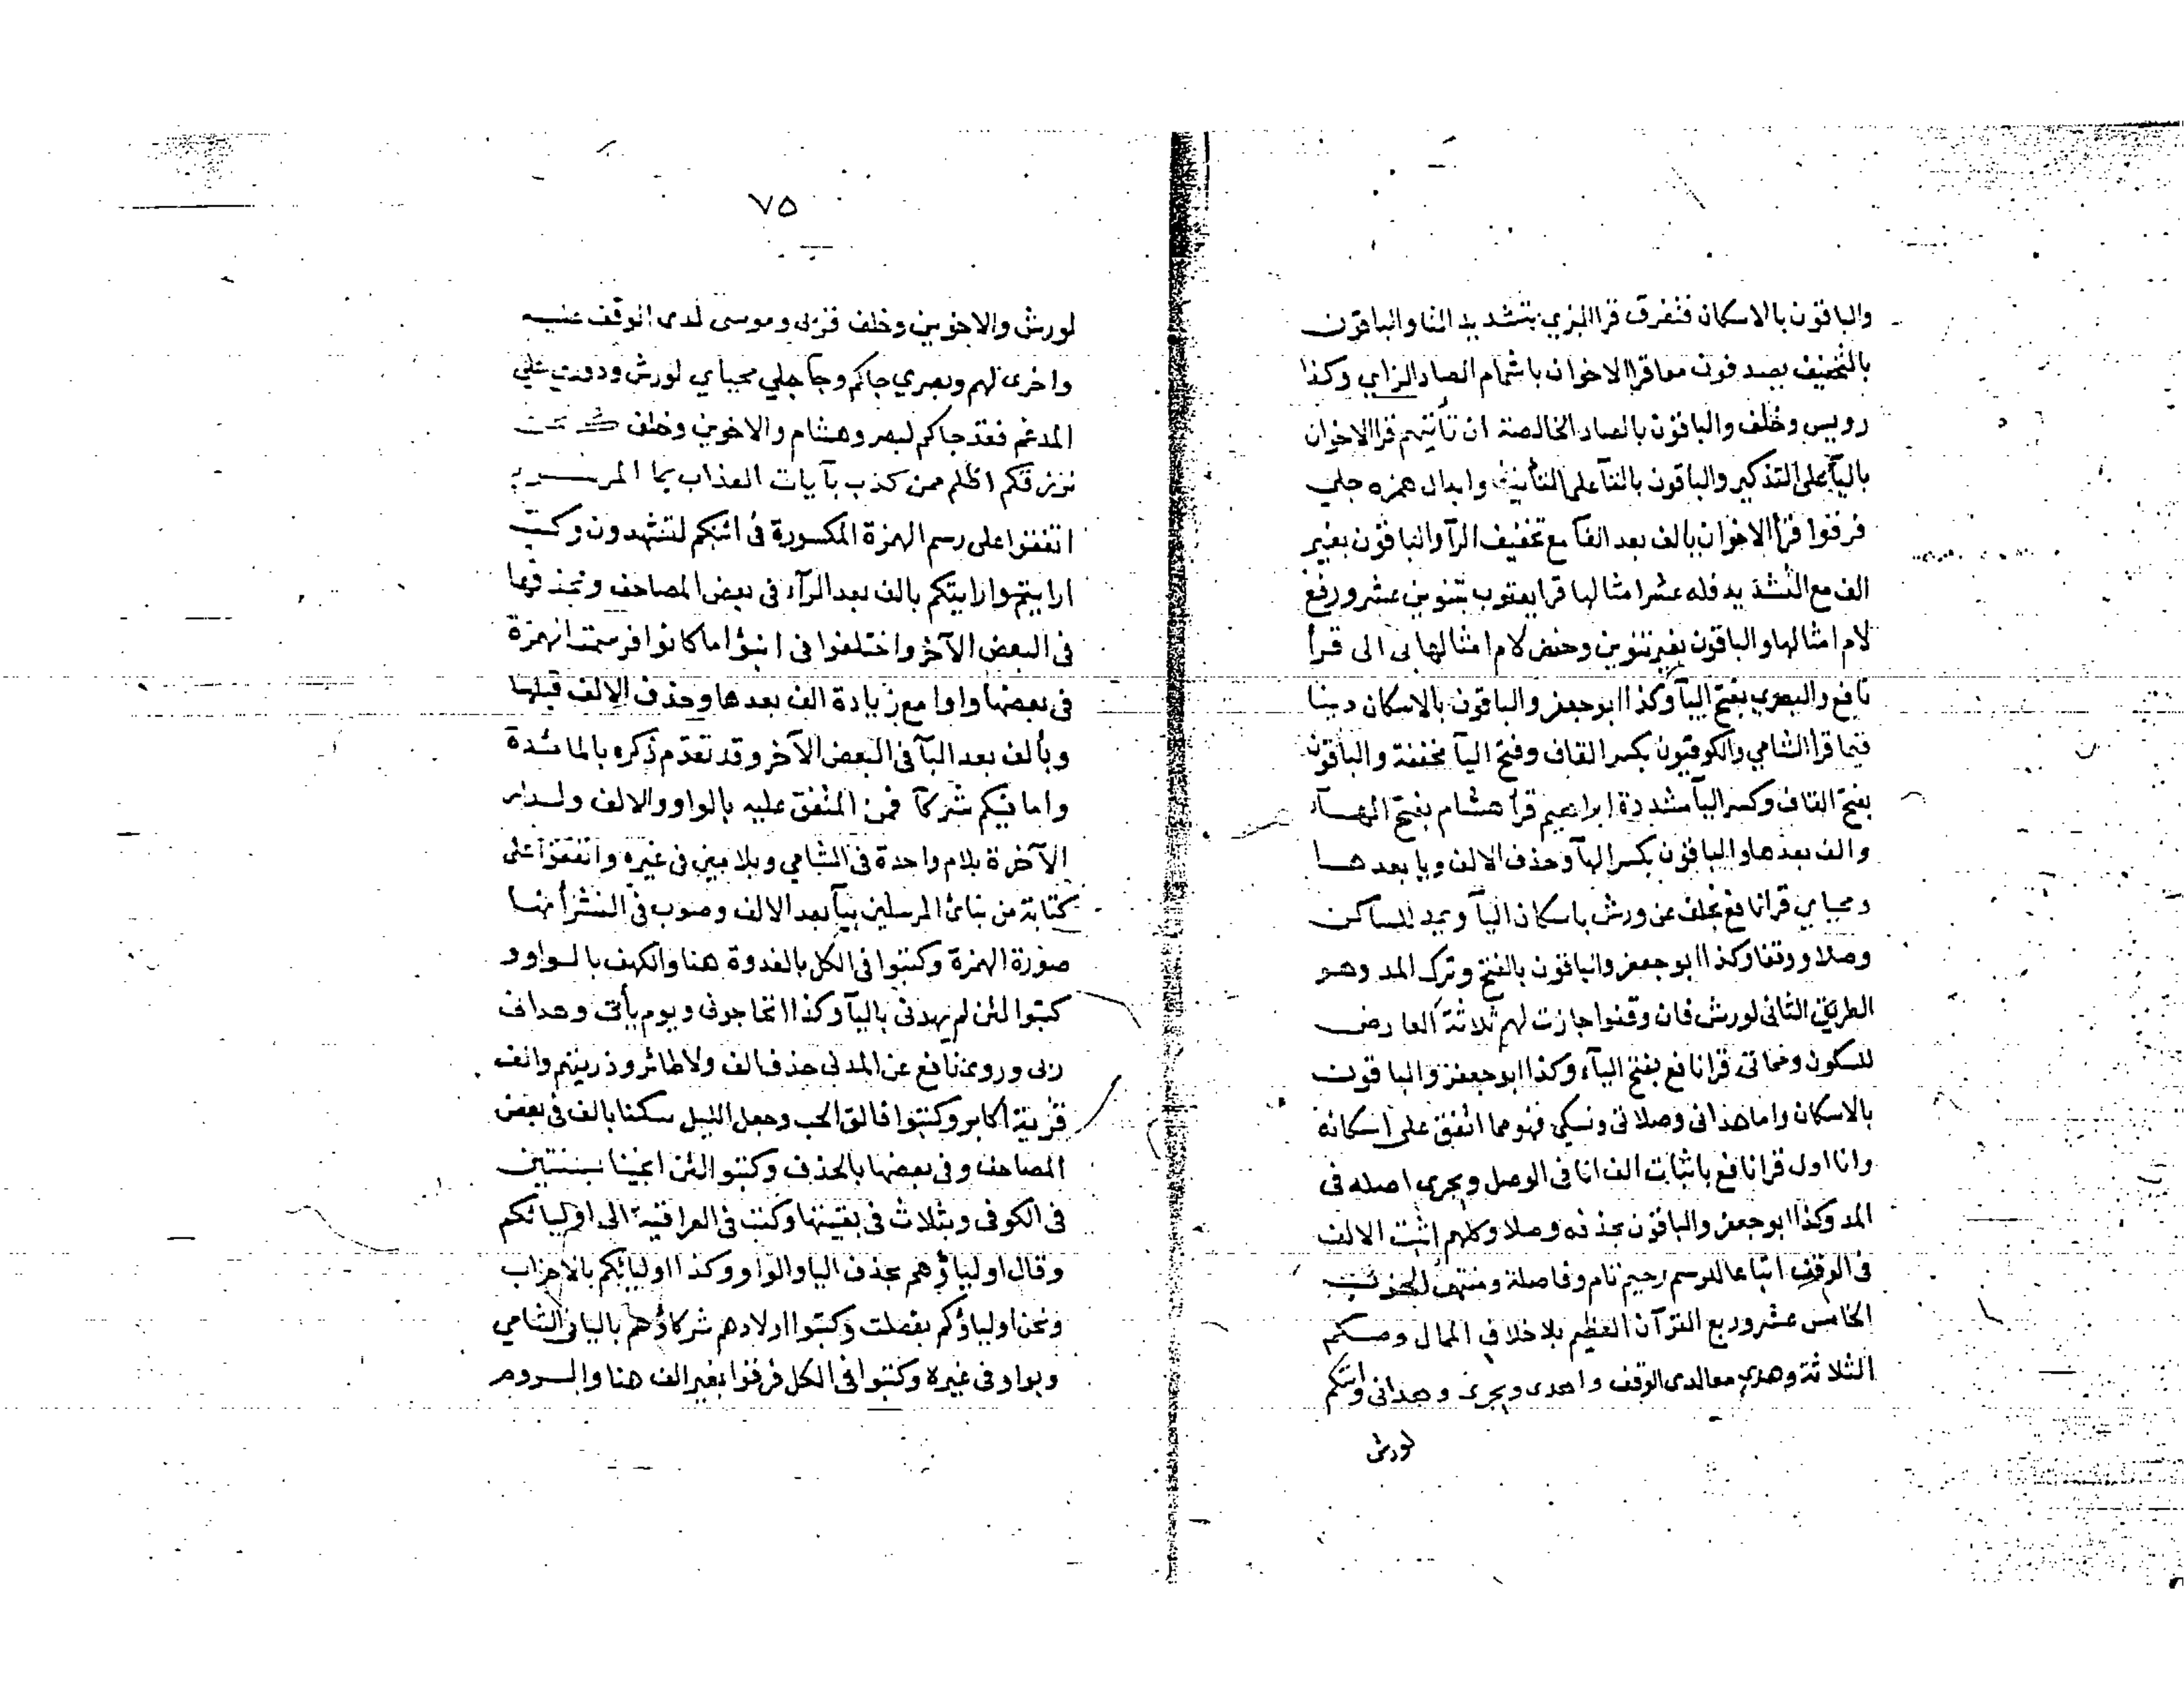 والباقون بالاسكان فتفرق قرا البزي بتشديد التا والباقون
بالتخفيف يصدفون معا قرا الاخوان باشمام الصاد الزاي وكذا
رويس وخلف والباقون بالصاد الخالصة ان تأتيهم قرا الاخوان
باليآ على التذكير والباقون بالتآ على التأنيث وابدال همزه جلي
فرقوا قرأ الاخوان بالف بعد الفآ مع تخفيف الرآ والباقون بغير
الف مع التشديد فله عشر امثالها قرا يعقوب بتنوين عشر ورفع
لام امثالها والباقون بغير تنوين وخفض لام امثالها ربى الى قرأ
نافع والبصري بفتح اليآ وكذا ابو جعفر والباقون بالاسكان دينا
قيما قرا الشامي والكوفيون بكسر القاف وفتح اليآ مخففة والباقون
بفتح القاف وكسر اليآ مشددة ابراهيم قرأ هشام بفتح الهآء
والف بعدها والباقون بكسر الهآ وحذف الالف ويا بعدها
ومحياي قرا نافع بخلف عن ورش باسكان اليآ ويمد للساكن
وصلا ووقفا وكذا ابو جعفر والباقون بالفتح وترك المد وهو
الطريق الثانى لورش فان وقفوا جازت لهم ثلاثة العارض
للسكون ومماتى قرا نافع بفتح اليآء وكذا ابو جعفر والباقون
بالاسكان واما هدانى وصلاتى ونسكي فهو مما اتفق على اسكانه
وانا اول قرا نافع باثبات الف انا فى الوصل ويجرى اصله فى
المد وكذا ابو جعفر والباقون بحذفه وصلا وكلهم اثبت الالف
فى الوقف اتباعا للرسم رحيم تام وفاصلة ومنتهى الحزب
الخامس عشر وربع القرآن العظيم بلا خلاف الممال وصكم
الثلاثة وهدى معا لدى الوقف واهدى ويجرى وهدانى واتيكم
لورش
٧٥
لورش والاخوين وخلف قربى وموسى لدى الوقف عليه
واخرى لهم وبصري جاكم وجآ جلي محياي لورش ودورى علي
المدغم فقد جاكم لبصر وهشام والاخوين وخلف نحن
نرزقكم اظلم ممن كذب بآيات العذاب بما المرسوم
اتفقوا على رسم الهمزة المكسورة فى ائنكم لتشهدون وكتب
ارايتم وارايتكم بالف بعد الرآء فى بعض المصاحف وبحذفها
فى البعض الآخر واختلفوا فى انبؤا ما كانوا فرسمت الهمزة
فى بعضها واوا مع زيادة الف بعدها وحذف الالف قبلها
وبألف بعد البآ فى البعض الآخر وقد تقدم ذكره بالمائدة
واما فيكم شركآ فمن المتفق عليه بالواو والالف ولدار
الآخرة بلام واحدة فى الشامي وبلامين فى غيره واتفقوا على
كتابة من نبائ المرسلين بيآ بعد الالف وصوب فى النشر أنها
صورة الهمزة وكتبوا فى الكل بالغدوة هنا والكهف بالواو و
كتبوا لئن لم يهدنى باليآ وكذا اتحاجونى ويوم يأتى وهدانى
ربى وروى نافع عن المدنى حذف الف ولا طائر وذريتهم والف
قرية اكابر وكتبوا فالق الحب وجعل الليل سكنا بالف فى بعض
المصاحف وفى بعضها بالحذف وكتبوا لئن انجينا بسنتين
فى الكوفى وبثلاث فى بقيتها وكتب فى العراقية الى اوليائكم
وقال اولياؤهم بحذف اليا والواو وكذا اوليائكم بالاحزاب
ونحن اولياؤكم بفصلت وكتبوا اولادهم شركاؤهم باليا فى الشامي
وبواو فى غيره وكتبوا فى الكل فرقوا بغير الف هنا والروم